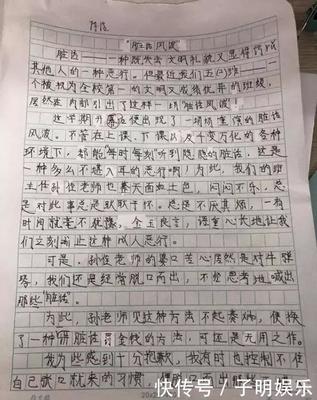 "脏话风波"
脏话——一种既失去文明礼貌又显得
其他人的一种恶行。但最近我们五(二)班——一
个被称为全校第一的文明又成绩优异的班级,
居然在内部引出了这样一场"脏话风波"!
这学期
风波。不管在上课、下课以及千变万化的各种
环境下,都能"每时每刻"听到隐隐的脏话,这是
一种多么不堪入耳的恶行啊!为此,我们的班
主任孙老师也整天面如土色,闷闷不乐,总
是对此事总是耿耿于怀。总是不厌其烦,一有
时间就毫不犹豫、金玉良言,语重心长地让我
们立刻制止这种成人恶行。
可是,孙老师的苦口婆心居然是对牛弹
琴,我们还是经常脱口而出,不经思考地喊出
那些"脏话"。
为此,孙老师见这种方法不起奏效,便换
了一种讲脏话罚金钱的方法,可还是无用之作。
我为此感到十分抱歉,我有时也控制不住
自己
快传号/子明娱乐